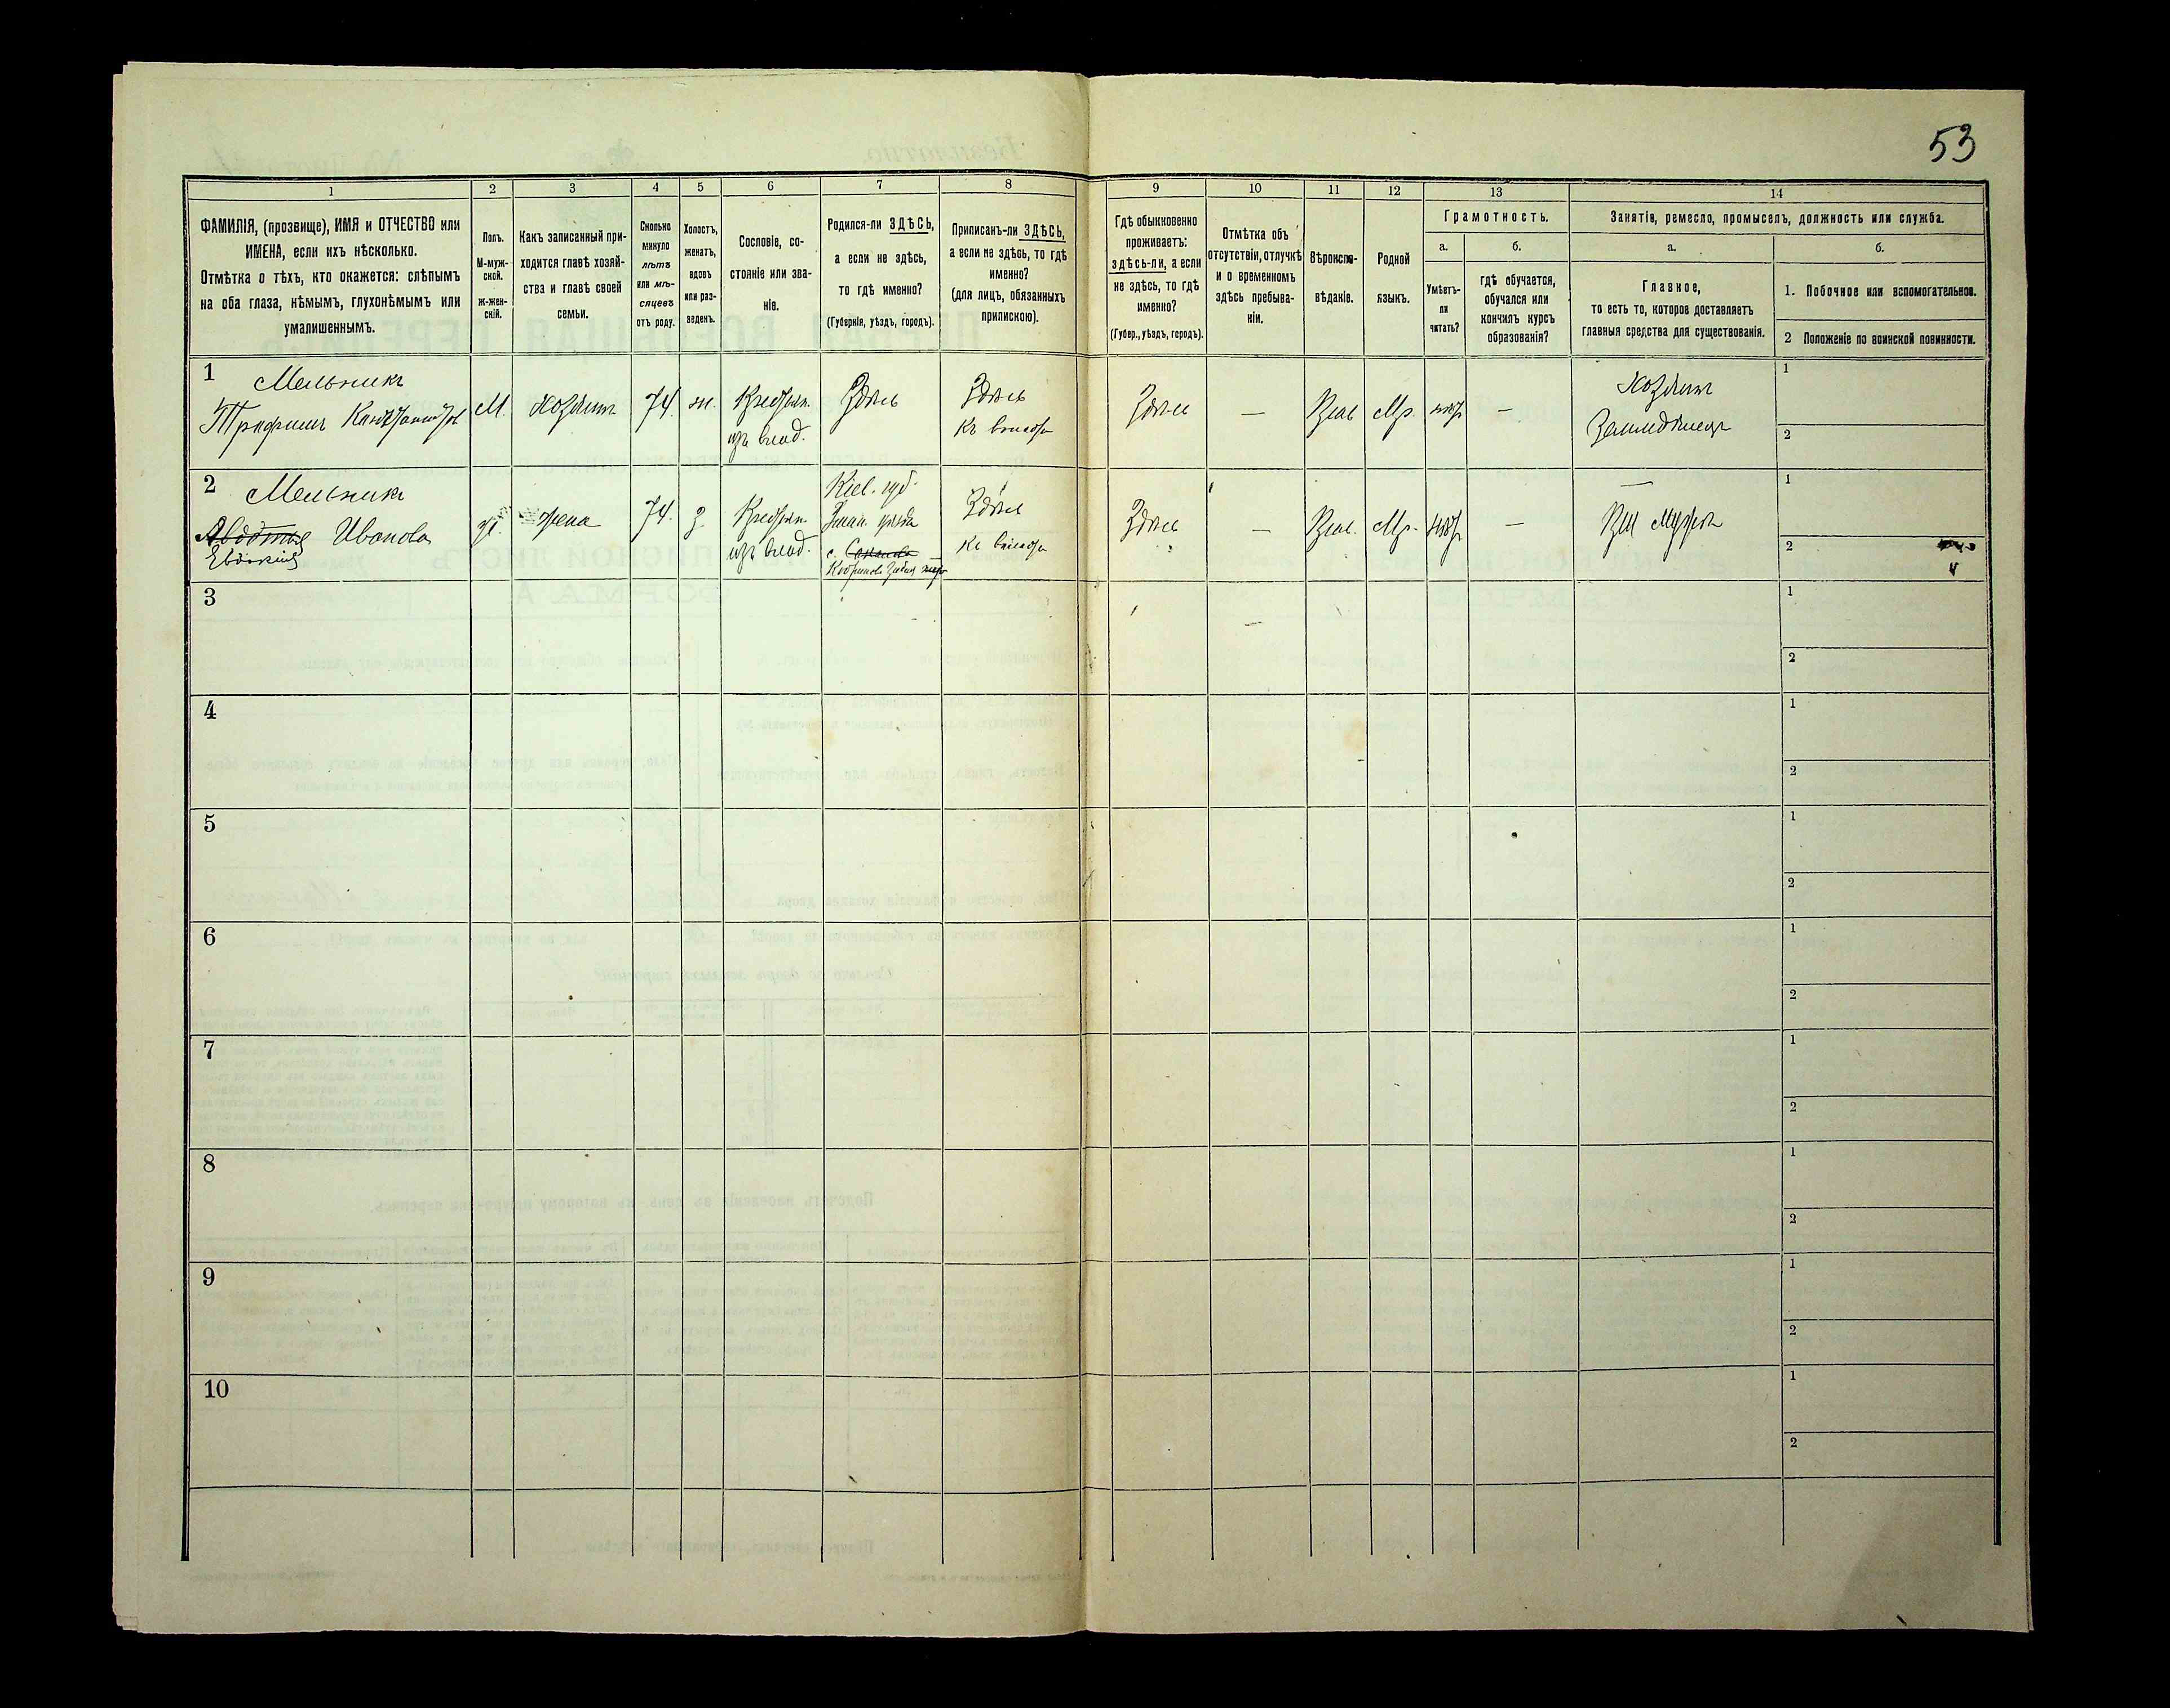 53
1
2
3
4
5
6
7
8
9
10
11
12
13
14
ФАМИЛІЯ, (прозвище), ИМЯ и ОТЧЕСТВО или
ИМЕНА, если ихъ нѣсколько.
Отмѣтка о тѣхъ, кто окажется: слѣпымъ
на оба глаза, нѣмымъ, глухонѣмымъ или
умалишеннымъ.
Полъ.
М-муж-
ской.
ж-жен-
скій.
Какъ записанный при-
ходится главѣ хозяй-
ства и главѣ своей
семьи.
Сколько
минуло
лѣтъ
или мѣ-
сяцевъ
отъ роду.
Холостъ,
женатъ,
вдовъ
или раз-
веденъ.
Сословіе, со-
стояніе или зва-
ніе.
Родился-ли ЗДѢСЬ,
а если не здѣсь,
то гдѣ именно?
(Губернія, уѣздъ, городъ).
Приписанъ-ли ЗДѢСЬ,
а если не здѣсь, то гдѣ
именно?
(для лицъ, обязанныхъ
припискою).
Гдѣ обыкновенно
проживаетъ:
здѣсь-ли, а если
не здѣсь, то гдѣ
именно?
(Губер., уѣздъ, городъ).
Отмѣтка объ
отсутствіи, отлучкѣ
и о временномъ
здѣсь пребыва-
ніи.
Вѣроиспо-
вѣданіе.
Родной
языкъ.
Грамотность.
а.
б.
Умѣетъ-
ли
читать?
гдѣ обучается,
обучался или
кончилъ курсъ
образованія?
Занятія, ремесло, промыселъ, должность или служба.
а.
б.
Главное,
то есть то, которое доставляетъ
главныя средства для существованія.
1. Побочное или вспомогательное.
2 Положеніе по воинской повинности.
1 Мельникъ
Трофимъ
М. Хозяинъ 74. ж. Крестьян. Здѣсь Здѣсь Здѣсь — Прав Мр. нѣтъ — Хозяинъ 1
изъ влад.
Земледѣлецъ 2
2 Мельникъ
Авдотья Иванова
Евдокія
ж. жена 74. з. Крестьян. Кіев. губ. Здѣсь Здѣсь — Прав. Мр. нѣтъ — При мужѣ 1
изъ влад. уѣзда
с.
2
3 1
2
4 1
2
5 1
2
6 1
2
7 1
2
8 1
2
9 1
2
10 1
2